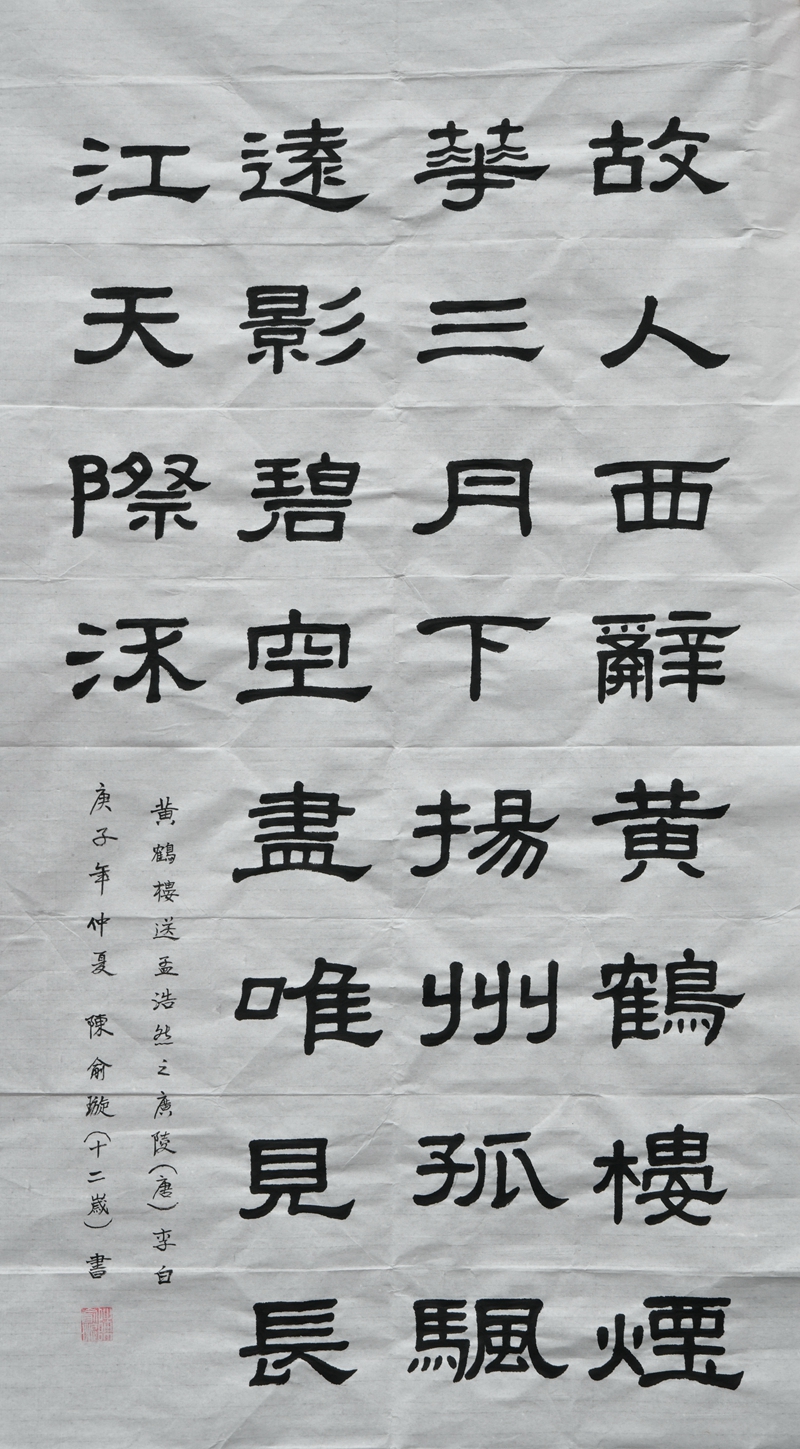 故人西辭黄鶴樓煙
華三月下揚州孤颿
遠影碧空盡唯見長
江天際流
黄鶴樓送孟浩然之廣陵(唐)李白
庚子年仲夏 陳俞璇(十二歲)書